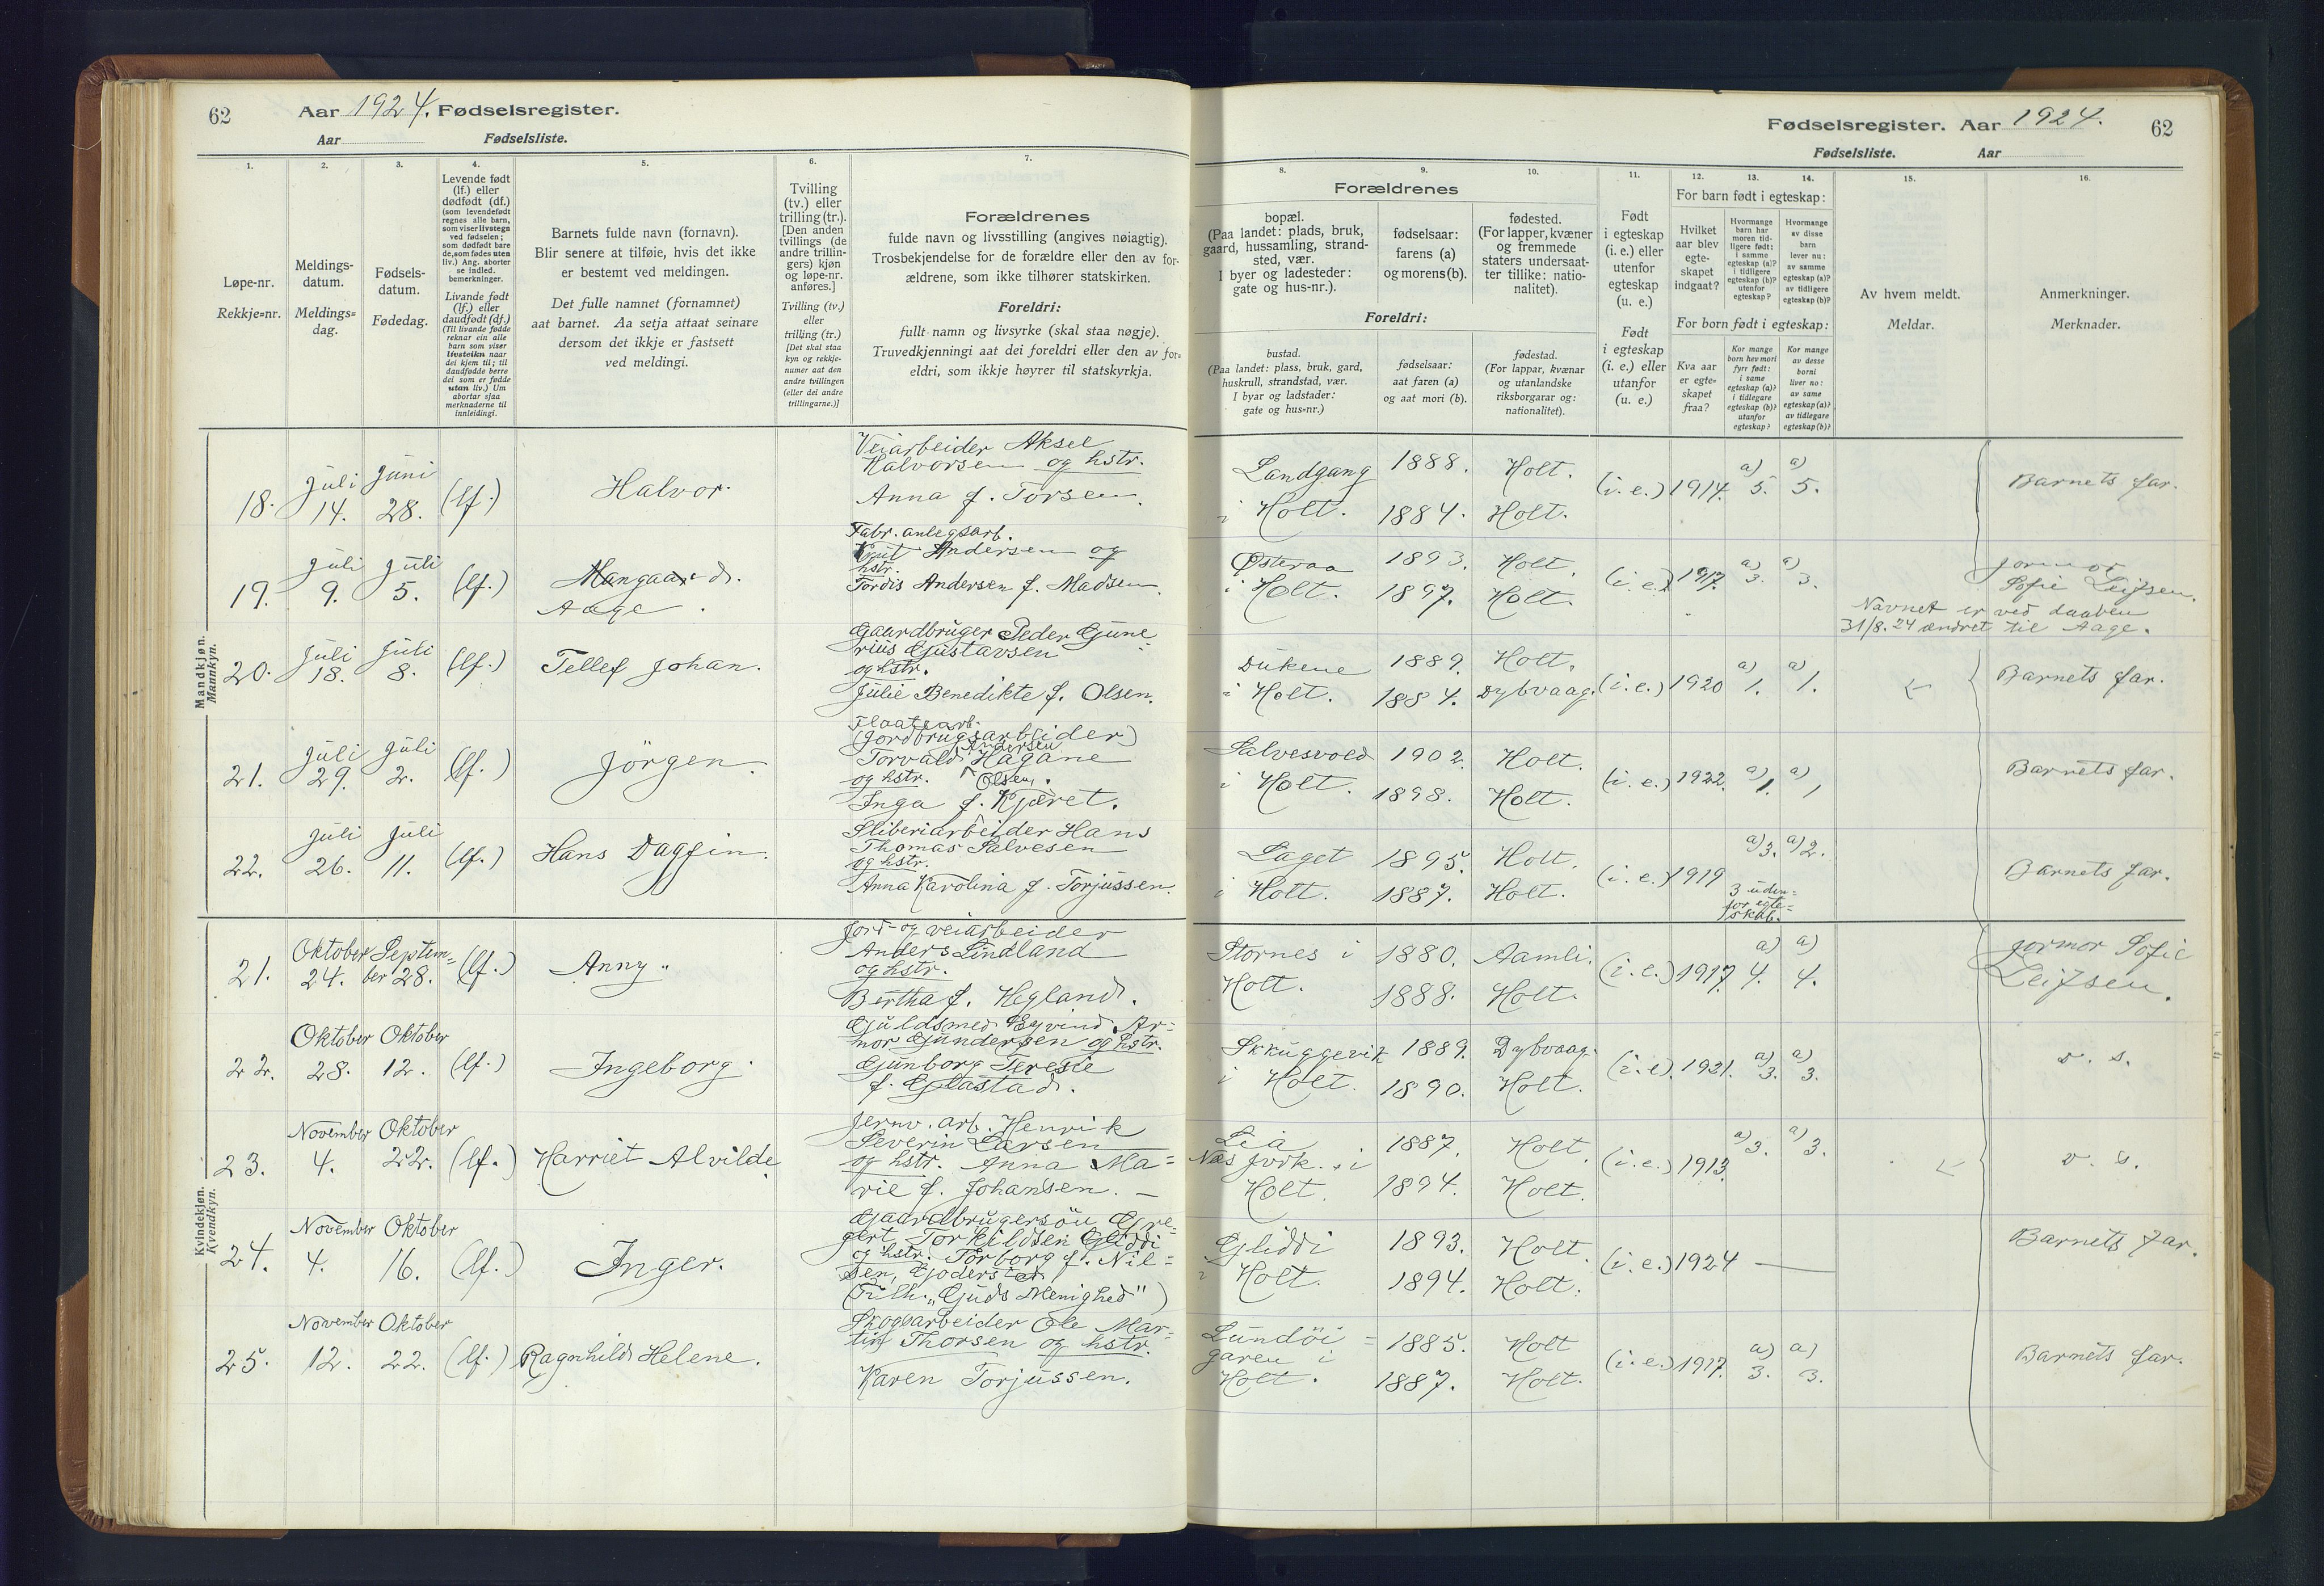 62
Aar 1924. Fødselsregister.
Aar Fødselsliste.
1.
2.
3.
4.
5.
6.
7.
Løpe-nr.
Rekkje=nr.
Meldings-
datum.
Meldings=
dag.
Fødsels-
datum.
Fødedag.
Levende født
(lf.) eller
dødfødt (df.)
(som levendefødt
regnes alle barn,
som viser livstegn
ved fødselen;
som dødfødt bare
de, som fødes uten
liv.) Ang. aborter
se indled.
bemerkninger.
Livande født
(lf.) eller
daudfødt (df.)
(Til livande fødde
reknar ein alle
barn som viser
livsteikn naar
dei kjem til; til
daudfødde berre
dei som er fødde
utan liv.) Um
abortar sjaa
merknaderne til
innleidingi.
Barnets fulde navn (fornavn).
Blir senere at tilføie, hvis det ikke
er bestemt ved meldingen.
Det fulle namnet (fornamnet)
aat barnet. Aa setja attaat seinare
dersom det ikkje er fastsett
ved meldingi.
Tvilling
(tv.) eller
trilling (tr.).
[Den anden
tvillings (de
andre trillin-
gers) kjøn
og løpe-nr.
anføres.]
Tvilling (tv.)
eller
trilling (tr.)
[Det skal staa
kyn og rekkje-
numer aat den
andre tvillingen
(eller dei andre
trillingarne.)]
Forældrenes
fulde navn og livsstilling (angives nøiagtig).
Trosbekjendelse for de forældre eller den av for-
ældrene, som ikke tilhører statskirken.
Foreldri:
fullt namn og livsyrke (skal staa nøgje).
Truvedkjenningi aat dei foreldri eller den av for=
eldri, som ikkje høyrer til statskyrkja.
Mandkjøn.
Mannkyn.
18. Juli 14. Juni 28. (lf.) Halvor.
Veiarbeider Aksel
Halvorsen og hstr.
Anna f. Torsen.
19. Juli 9. Juli 5. (lf.) Mangaard.
Aage.
Fabr. anlegsarb.
Knut Andersen og
hstr.
Tordis Andersen f. Madsen.
20. Juli 18. Juli 8. (lf.) Tellef Johan.
Gaardbruger Peder Gune
rius Gustavsen
og hstr.
Julie Benedikte f. Olsen.
21. Juli 29. Juli 2. (lf.) Jörgen.
Flaatearb.
(Jordbrugsarbeider)
Andersen
Torvald Hagane
og hstr. Olsen,
Inga f. Kjæret.
22. Juli 26. Juli 11. (lf.) Hans Dagfin.
Sliberiarbeider Hans
Thomas Salvesen
og hstr.
Anna Karolina f. Torjussen.
Kvindekjøn.
Kvendkyn.
21. Oktober 24. Septem=
ber 28. (lf.) Anny.
Jord- og veiarbeider
Anders Lindland
og hstr.
Bertha f. Hegland.
22. Oktober 28. Oktober 12. (lf.) Ingeborg.
Guldsmed Eyvind Ar=
mor Gundersen og hstr.
Gunborg Teresie
f. Glastad.
23. November 4. Oktober 22. (lf.) Harriet Alvilde
Jernv. arb. Henrik
Severin Larsen
og hstr. Anna Ma=
rie f. Johansen. —
24. November 4. Oktober 16. (lf.) Inger.
Gaardbrugersön Gre=
gert Torkildsen Gliddi
og hstr. Torborg f. Nil=
sen, Goderstad
(Tilh. „Guds Menighed")
25. November 12. Oktober 22. (lf.) Ragnhild Helene.
Skogsarbeider Ole Mar=
tin Thorsen og hstr.
Karen Torjussen.
Fødselsregister. Aar 1924. 62
Fødselsliste. Aar
8.
9.
10.
11.
12.
13.
14.
15.
16.
Forældrenes
bopæl.
(Paa landet: plads, bruk,
gaard, hussamling, strand-
sted, vær.
I byer og ladesteder:
gate og hus-nr.).
fødselsaar:
farens (a)
og morens (b).
fødested.
(For lapper, kvæner
og fremmede
staters undersaat-
ter tillike: natio-
nalitet).
Foreldri:
bustad.
(Paa landet: plass, bruk, gard,
huskrull, strandstad, vær.
I byar og ladstader:
gate og hus=nr.)
fødselsaar:
aat faren (a)
og aat mori (b).
fødestad.
(For lappar, kvænar
og utanlandske
riksborgarar og:
nationalitet).
Født
i egteskap
(i. e.) eller
utenfor
egteskap
(u. e.)
Født
i egteskap
(i. e.) eller
utanfor
(u. e.)
For barn født i egteskap:
Hvilket
aar blev
egte-
skapet
indgaat?
Hvormange
barn har
moren tid-
ligere født:
i samme
egteskap (a)?
i tidligere
egteskap (b)?
utenfor
egteskap?
Hvormange
av disse
barn
lever nu:
av samme
egteskap (a)?
av tidligere
egteskap (b)?
For born født i egteskap:
Kva aar
er egte=
skapet
fraa?
Kor mange
born hev mori
fyrr født:
i same
egteskap (a)?
i tidlegare
egteskap (b)?
utanfor
egteskap?
Kor mange
av desse
borni
liver no:
av same
egteskap (a)?
av tidlegare
egteskap (b)?
Av hvem meldt.
Meldar.
Anmerkninger.
Merknader.
Landgang
i Holt. 1888. 1884. Holt. Holt. (i. e.) 1914. a) 5. a) 5. Barnets far.
Østeraa
i Holt. 1893. 1897. Holt. Holt. (i. e.) 1917. a) 3. a) 3. Jormor
Sofie Leifsen.
Navnet er ved daaben
31/8.24 ændret til Aage.
Dukene
i Holt. 1889. 1884. Holt. Dybvaag. (i. e.) 1920 a) 1. a) 1. Barnets far.
Salvesvold
i Holt. 1902. 1898. Holt. Holt. (i. e.) 1922. a) 1. a) 1 Barnets far.
Laget
i Holt. 1895. 1887. Holt. Holt. (i. e.) 1919 a) 3. a) 2.
3 uden=
for egte=
skab.
Barnets far.
Stornes i
Holt. 1880. 1888. Aamli. Holt. (i. e.) 1917. a) 4. a) 4. Jormor Sofie
Leifsen.
Skkuggevik
i Holt. 1889. 1890. Dybvaag. Holt. (i. e). 1921. a) 3. a) 3. d. s.
Lia
Næs Jvrk. i
Holt. 1887. 1894. Holt. Holt. (i. e.) 1913. a) 3. a) 3. d. s.
Gliddi
i Holt. 1893. 1894. Holt. Holt. (i. e.) 1924 — Barnets far.
Lundöi=
garen i
Holt. 1885. 1887. Holt Holt. (i. e.) 1917. a) 3. a) 3. Barnets far.